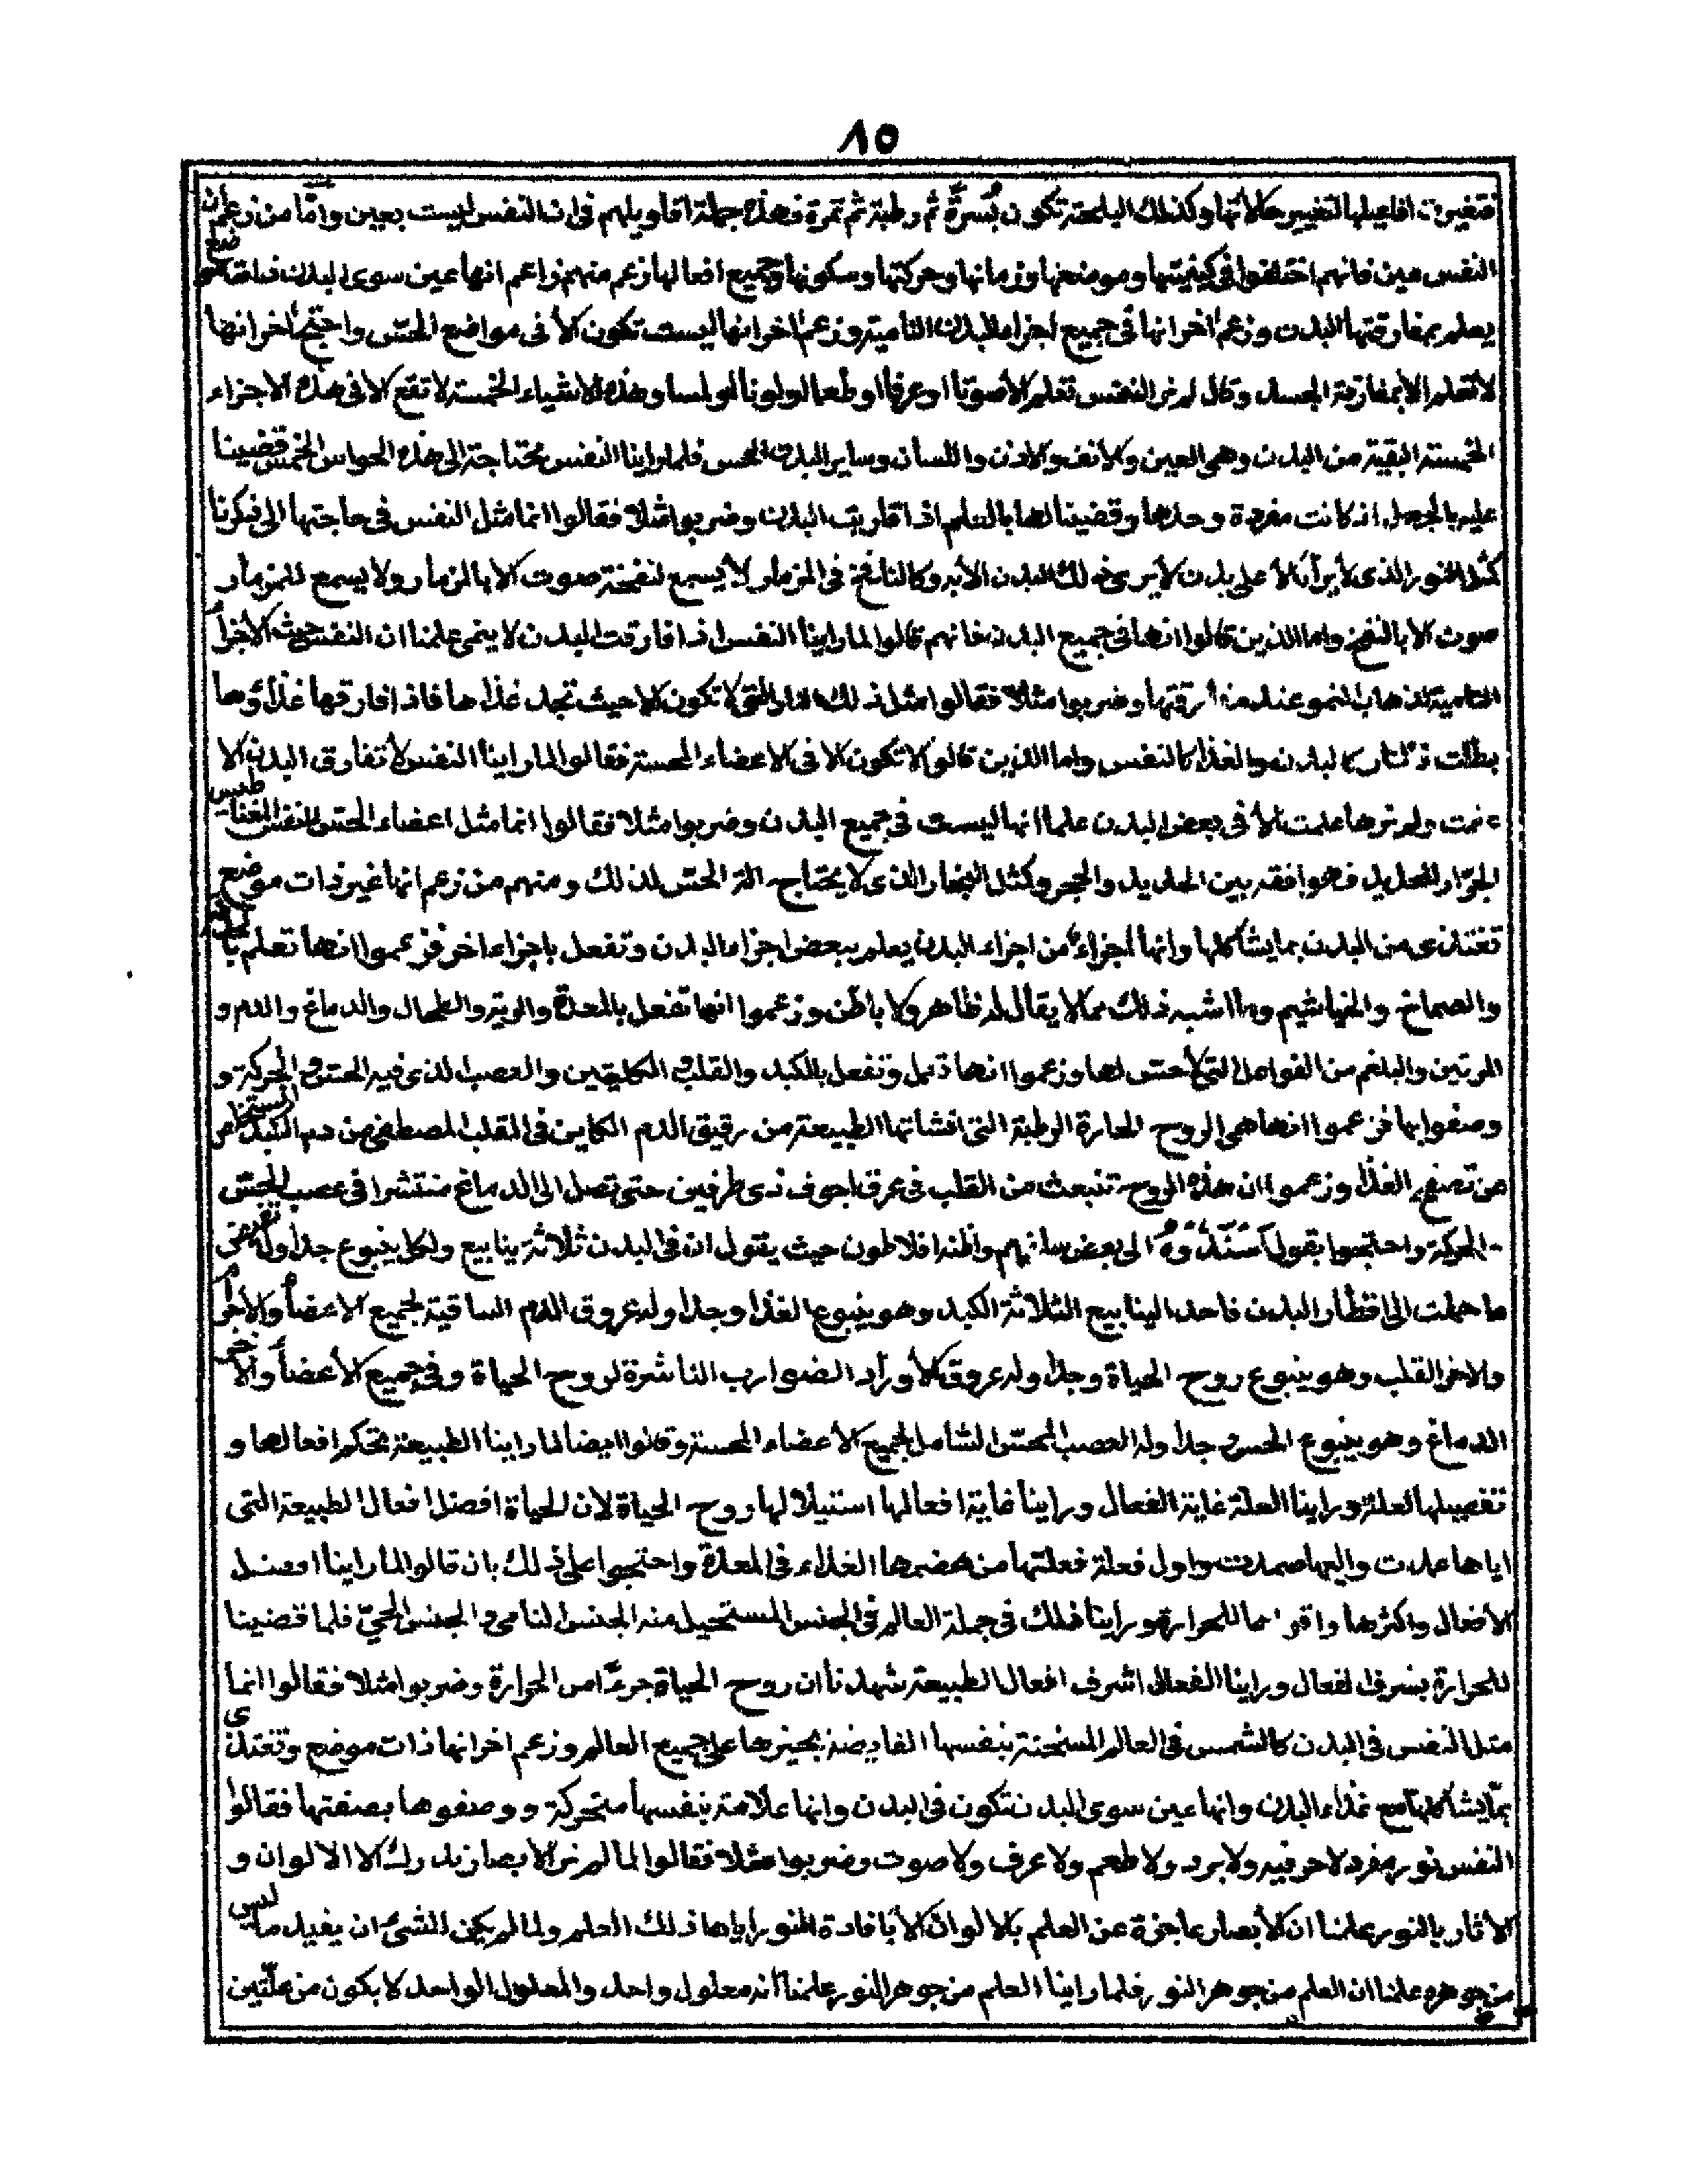 ٨٥
فتغيرت افاعيلها لتغيير حالاتها وكذلك البلحة تكون بُسرةً ثم رطبة ثم تمرة فهذه جملة اقاويلهم فى ان النفس ليست بعين وامّا من زعم ان
النفس عين فانهم اختلفوا فى كيفيتها وموضعها وزمانها وحركتها وسكونها وجميع افعالها زعم منهم زاعم انها عين سوى البدن ذات موضع
يعلم بمفارقتها البدن وزعم اخر انها فى جميع اجزاء البدن النامية وزعم اخر انها ليست تكون الا فى مواضع الحسّ واحتج اخر انها
لا تعلم الا بمفارقة الجسد وقال لم نر النفس تعلم الا صوتا او عرفا او طعما او لونا او لمسا وهذه الاشياء الخمسة لا تقع الا فى هذه الاجزاء
الخمسة البقية من البدن وهى العين والانف والاذن واللسان وساير البدن المحس فلما راينا النفس محتاجة الى هذه الحواس الخمس قضينا
عليها بالجهل اذ كانت مفردة وحدها وقضينا لها بالعلم اذا قاربت البدن وضربوا مثلا فقالوا انما مثل النفس فى حاجتها الى فكرنا
كمثل النور الذى لا يرا الا على بدن لا يرى ذلك البدن الا به وكالنافخ فى المزمار لا يسمع لنفخة صوت الا بالمزمار ولا يسمع للمزمار
صوت الا بالنفخ واما الذين قالوا انها فى جميع البدن فانهم قالوا لما راينا النفس اذا فارقت البدن لا ينمى علمنا ان النفس حيث الاجزأ
النامية لذهاب النمو عند مفارقتها وضربوا مثلا فقالوا مثل ذلك النار التى لا تكون الا حيث تجد غذاها فاذا فارقها غذاؤها
بطلت فالنار كالبدن والغذا كالنفس واما الذين قالوا لا تكون الا فى الاعضاء المحسة فقالوا لما راينا النفس لا تفارق البدن الا
ولم نرها علمت الا فى بعض البدن علما انها ليست فى جميع البدن وضربوا مثلا فقالوا انما مثل اعضاء الحسّ للنفس المغناطيس
الجرّار للحديد فهو افقد بين الحديد والحجر وكمثل البخار الذى لا يحتاج الة الحسّ لذلك ومنهم من زعم انها غير ذات موضع
تغتذى من البدن بما يشاكلها وانها اجزاء من اجزاء البدن يعلم ببعض اجزاء البدن وتفعل باجزاء اخر فزعموا انها تعلم
والصماخ والخياشيم وما اشبه ذلك مما لا يقال له ظاهر ولا باطن وزعموا انها تفعل بالمعدة والرية والطحال والدماغ والدم و
المرتين والبلغم من الفواعل التى لا حسّ لها وزعموا انها تعمل وتفعل بالكبد والقلب والكليتين والعصب الذى فيه الحسّ والحركة و
وصفوا بها فزعموا انها هى الروح الحارة الرطبة التى افشاتها الطبيعة من رقيق الدم الكاين فى القلب المصطفى من دم الكبد المستخلص
من تصفى الغذا وزعموا ان هذه الروح تنبعث من القلب فى عرق اجوف ذى طرفين حتى تصل الى الدماغ منتشرا فى عصب الحسّ
والحركة واحتجوا بقول اسندوه الى بعض واظنه افلاطون حيث يقول ان فى البدن ثلاثة ينابيع ولكل ينبوع جداول
ما حملت الى اقطار البدن فاحد الينابيع الثلاثة الكبد وهو ينبوع الغذا وجداوله عروق الدم الساقية لجميع الاعضأ والاجزأ
والاخر القلب وهو ينبوع روح الحياة وجداوله عروق الاوراد الضوارب الناشرة لروح الحياة وفى جميع الاعضأ والاخر
الدماغ وهو ينبوع الحس وجداوله العصب المحسّ الشامل لجميع الاعضاء المحسة وقالوا ايضا لما راينا الطبيعة تحكم افعالها و
تفصيلها لعلة وراينا العلة غاية الفعال وراينا غاية افعالها استنيلا لها روح الحياة لان الحياة افضل افعال الطبيعة التى
اياها عمدت واليها صمدت واول فعلة فعلتها من هضمها الغذاء فى المعدة واحتجوا على ذلك بان قالوا لما راينا افضل
الافعال واكثرها للحرارة وراينا ذلك فى جملة العالم فى الجنس المستحيل منه الجنس النامى والجنس الحيّ فلما قضينا
للحرارة بشرف الفعال وراينا الفعال اشرف افعال الطبيعة شهدنا ان روح الحياة جزءًا من الحرارة وضربوا مثلا فقالوا انما
مثل النفس فى البدن كالشمس فى العالم المسخنة بنفسها الفايضة بحيزها على جميع العالم وزعم اخر انها ذات موضع وتغتذى
بما يشاكلها مع غذاء البدن وانها عين سوى البدن تكون فى البدن وانها علامة بنفسها متحركة ووصفوها بصفتها فقالوا
النفس نور مفرد لا حر فيه ولا برد ولا طعم ولا عرف ولا صوت وضربوا مثلا فقالوا لما لم نر الابصار تدرك الا الالوان و
الاثار بالنور علمنا ان الابصار عاجزة عن العلم بالالوان الا بافادة النور اياها ذلك العلم ولما لم يكن للشئ ان يفيد ما ليس
من جوهره علمنا ان العلم من جوهر النور فلما راينا العلم من جوهر النور علمنا انه معلول واحد والمعلول الواحد لا يكون من علّتين